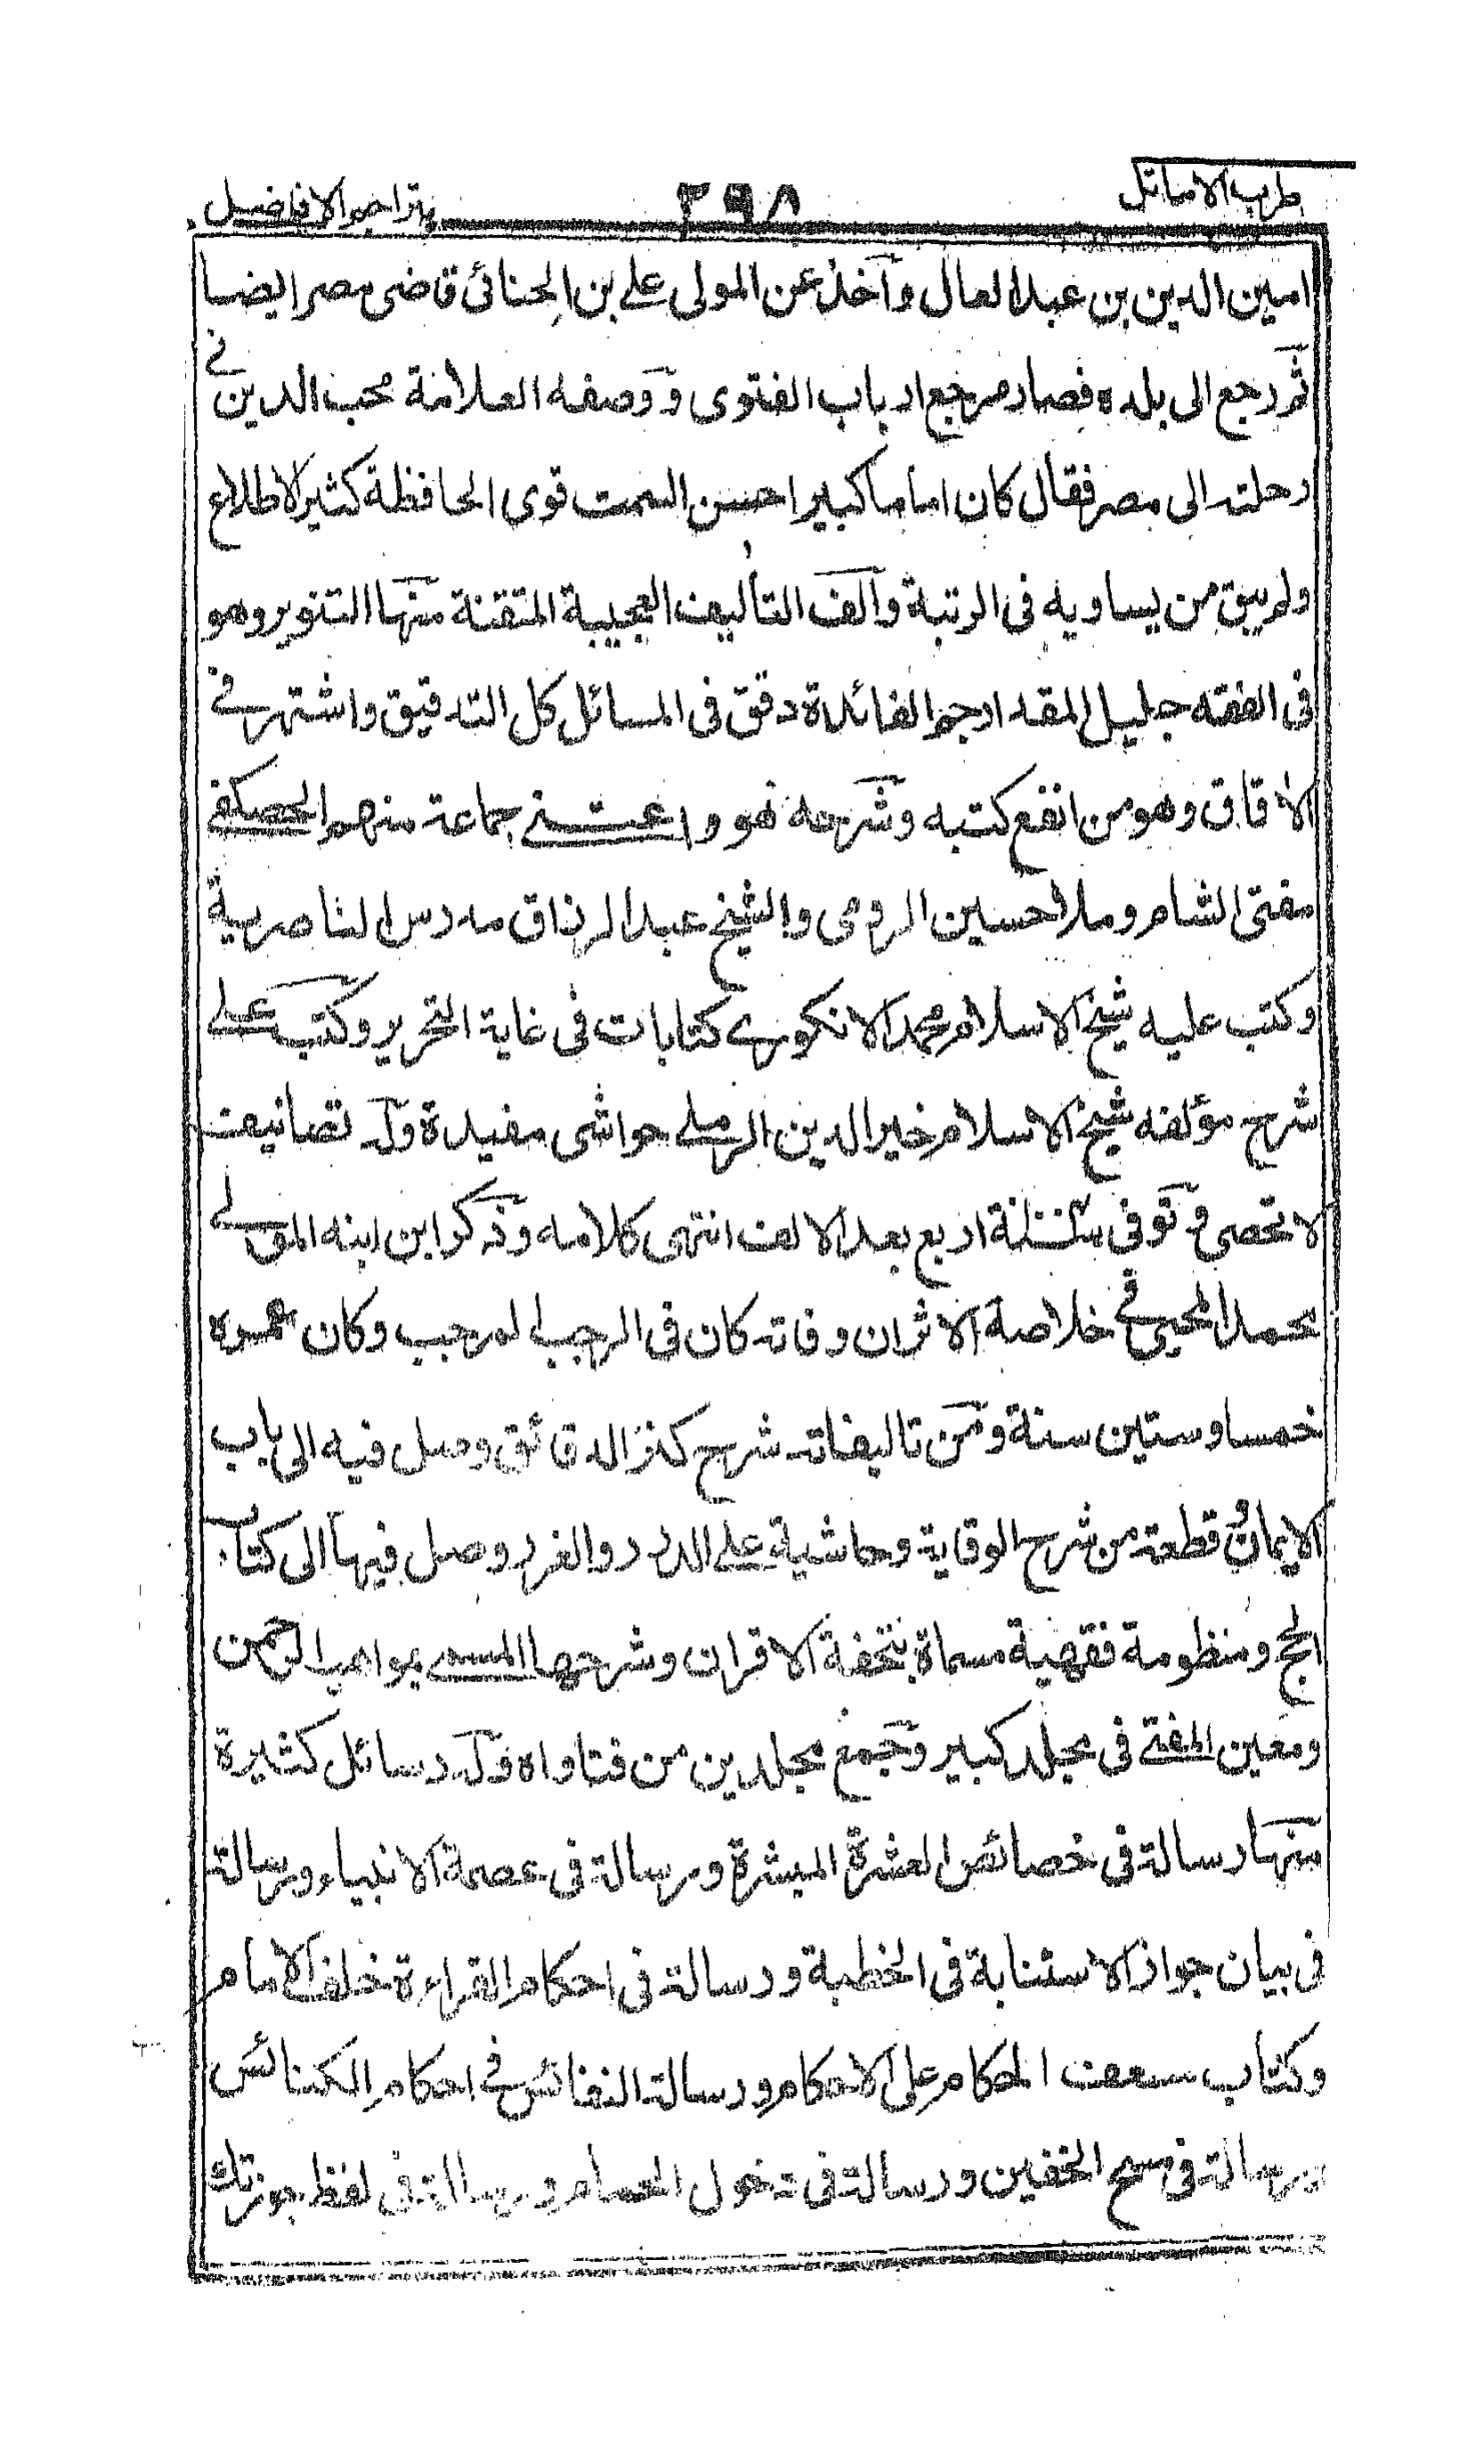 طرب الاماثل ٢٩٨ بتراجم الافاضل
امين الدين بن عبد العال وآخذ عن المولى علي بن الحنائي قاضى مصر ايضا
ثم رجع الى بلده فصار مرجع ارباب الفتوى ووصفه العلامة محب الدين في
رحلته الى مصر فقال كان اماما كبيرا حسن السمت قوى الحافظة كثير الاطلاع
ولم يبق من يساويه فى الرتبة وألف التأليف العجيبة المتقنة منها التنوير وهو
فى الفقه جليل المقدار جم الفائدة دقق فى المسائل كل التدقيق واشتهر في
الافاق وهو من انفع كتبه وشرحه هو واعتنى جماعة منهم الحصكفي
مفتى الشام وملا حسين الرومى والشيخ عبد الرزاق مدرس الناصرية
وكتب عليه شيخ الاسلام محمد الانكوري كتابات فى غاية التحرير وكتب على
شرح مؤلفه شيخ الاسلام خير الدين الرملي حواشى مفيدة وله تصانيف
لا تحصى وتوفى سنة ١٠٠٤ اربع بعد الالف انتهى كلامه وذكر ابن ابنه المولى
محمد المحبي في خلاصة الاثر ان وفاته كان فى الرجب المرجب وكان عمره
خمسا وستين سنة ومن تاليفاته شرح كنز الدقائق وصل فيه الى باب
الايمان وقطعة من شرح الوقاية وحاشية على الدرر والغرر وصل فيها الى كتاب
الحج ومنظومة فقهية مسماة بتحفة الاقران وشرحها المسمى بمواهب الرحمن
ومعين المفتي فى مجلد كبير وجمع مجلدين من فتاواه وله رسائل كثيرة
منها رسالة فى خصائص العشرة المبشرة ورسالة فى عصمة الانبياء ورسالة
فى بيان جواز الاستنابة فى الخطبة ورسالة فى احكام القراءة خلف الامام
وكتاب سعف الحكام على الاحكام ورسالة النفائس في احكام الكنائس
ورسالة فى مسح الخفين ورسالة فى دخول الحمام ورسالة فى لفظ جوزتك